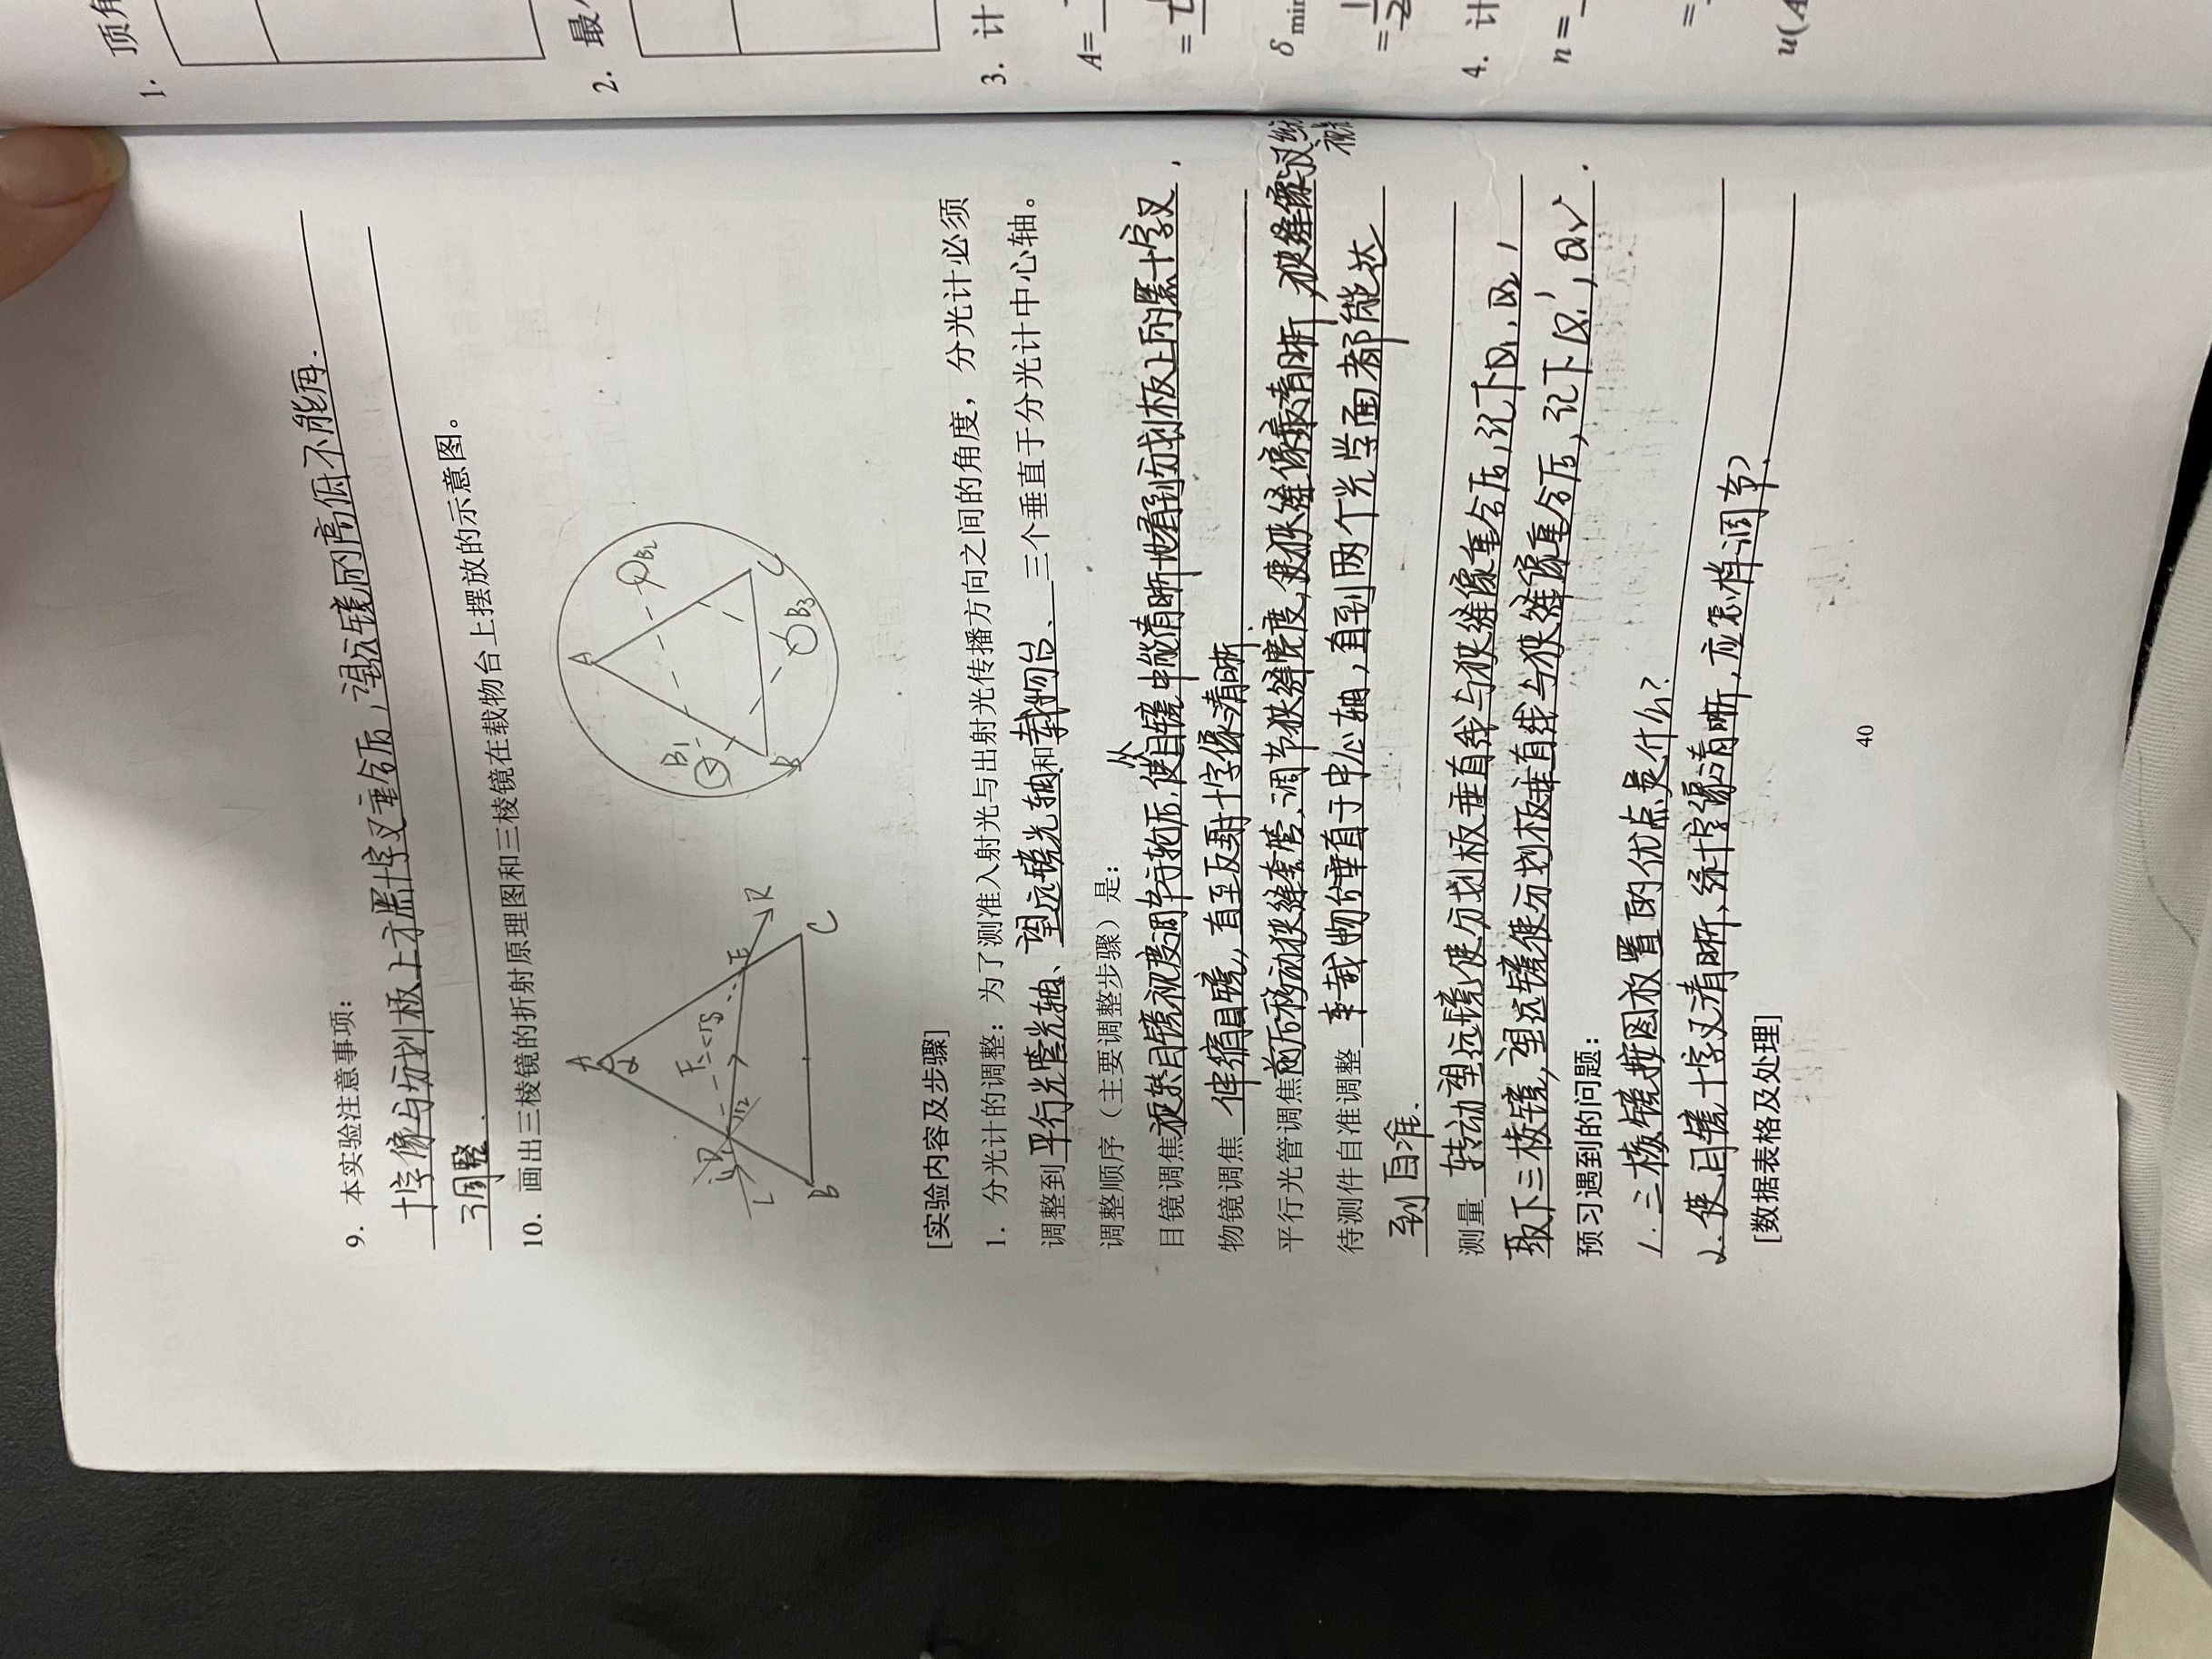 9. 本实验注意事项:
十字像与分划板上方黑十字叉重合后,望远镜的高低不能再
调整.
10. 画出三棱镜的折射原理图和三棱镜在载物台上摆放的示意图。
A
α
D
F
δ
i₂
L
E
R
B
C
A
B₁
B₂
B
C
B₃
[实验内容及步骤]
1. 分光计的调整:为了测准入射光与出射光传播方向之间的角度,分光计必须
调整到平行光管光轴、望远镜光轴和载物台、三个垂直于分光计中心轴。
调整顺序(主要调整步骤)是:
从
目镜调焦旋转目镜视度调节手轮后,使目镜中能清晰地看到分划板上的黑十字叉,
物镜调焦 伸缩目镜,直至反射十字像清晰.
平行光管调焦前后移动狭缝套管、调节狭缝宽度,使狭缝像最清晰,狭缝像与叉丝无
视差
待测件自准调整 载物台垂直于中心轴,直到两个光学面都能达
到自准.
测量 转动望远镜使分划板垂直线与狭缝像重合后,记下θ₁,θ₂,
取下三棱镜,望远镜使分划板垂直线与狭缝像重合后,记下θ₁',θ₂'.
预习遇到的问题:
1.三棱镜按图放置的优点是什么?
2.使目镜十字叉清晰,绿十字像清晰,应怎样调节?
[数据表格及处理]
40
1. 顶角
2. 最
3. 计
A=
=
δmin
=1/2
4. 计
n=
=
u(A